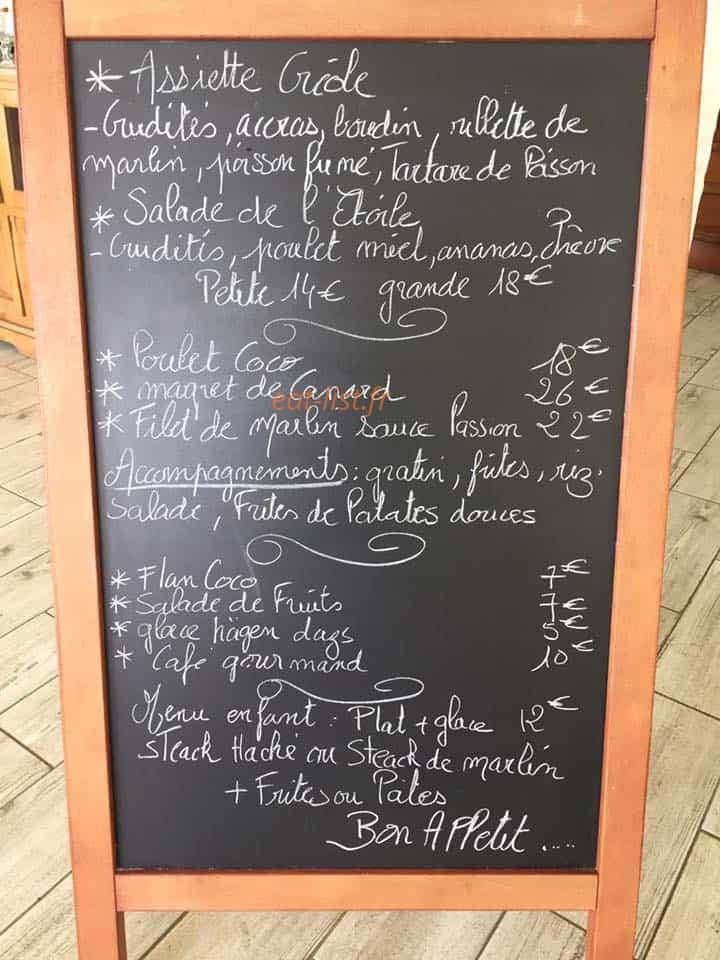 * Assiette Créole
- Crudités, accras, boudin, rillette de
marlin, poisson fumé, Tartare de Poisson
* Salade de l'Etoile
- Crudités, poulet miel, ananas, chèvre
Petite 14€ grande 18€
* Poulet Coco 18€
* magret de Canard 26€
eat-list.fr
* Filet de Marlin sauce Passion 22€
Accompagnements: gratin, frites, riz.
Salade, Frites de Patates douces
* Flan Coco 7€
* Salade de Fruits 7€
* glace hàgen dazs 5€
* Café gourmand 10€
Menu enfant: Plat + glace 12€
STeack Haché ou Steack de marlin
+ Frites ou Pâtes
Bon APPetit.....